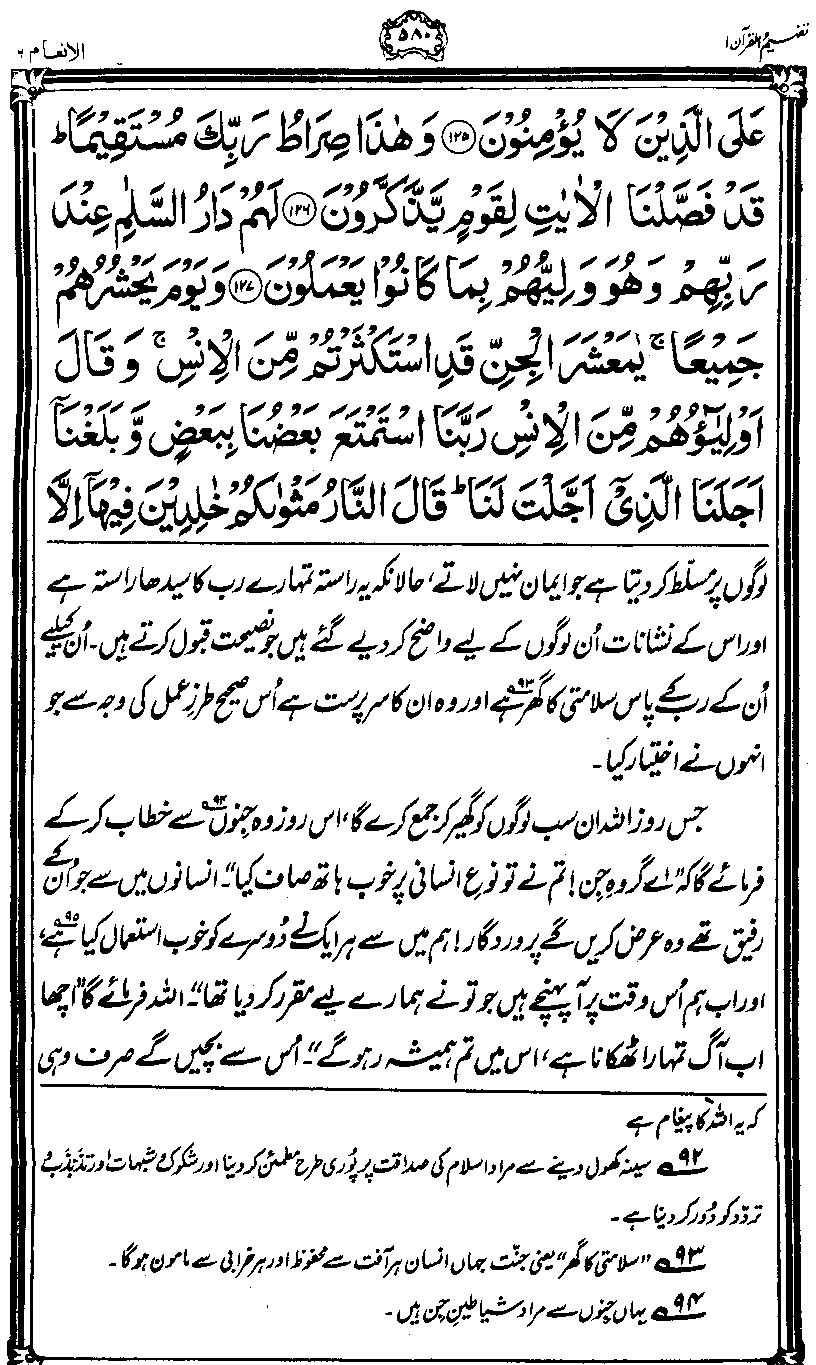 تفہیم القرآن ۱
۵۸۰
الانعام ۶
عَلَى الَّذِيْنَ لَا يُؤْمِنُوْنَ ﴿۱۲۵﴾ وَهٰذَا صِرَاطُ رَبِّكَ مُسْتَقِيْمًا ؕ
قَدْ فَصَّلْنَا الْاٰيٰتِ لِقَوْمٍ يَّذَّكَّرُوْنَ ﴿۱۲۶﴾ لَهُمْ دَارُ السَّلٰمِ عِنْدَ
رَبِّهِمْ وَهُوَ وَلِيُّهُمْ بِمَا كَانُوْا يَعْمَلُوْنَ ﴿۱۲۷﴾ وَيَوْمَ يَحْشُرُهُمْ
جَمِيْعًا ۚ يٰمَعْشَرَ الْجِنِّ قَدِ اسْتَكْثَرْتُمْ مِّنَ الْاِنْسِ ۚ وَقَالَ
اَوْلِيٰٓؤُهُمْ مِّنَ الْاِنْسِ رَبَّنَا اسْتَمْتَعَ بَعْضُنَا بِبَعْضٍ وَّبَلَغْنَاۤ
اَجَلَنَا الَّذِيْۤ اَجَّلْتَ لَنَا ؕ قَالَ النَّارُ مَثْوٰىكُمْ خٰلِدِيْنَ فِيْهَاۤ اِلَّا
لوگوں پر مسلّط کر دیتا ہے جو ایمان نہیں لاتے، حالانکہ یہ راستہ تمہارے رب کا سیدھا راستہ ہے
اور اس کے نشانات اُن لوگوں کے لیے واضح کر دیے گئے ہیں جو نصیحت قبول کرتے ہیں۔ اُن کیلیے
اُن کے رب کے پاس سلامتی کا گھر۹۳ ہے اور وہ ان کا سرپرست ہے اُس صحیح طرزِ عمل کی وجہ سے جو
انہوں نے اختیار کیا۔
جس روز اللہ ان سب لوگوں کو گھیر کر جمع کرے گا، اس روز وہ جنوں۹۴ سے خطاب کر کے
فرمائے گا کہ ”اے گروہِ جن! تم نے تو نوعِ انسانی پر خوب ہاتھ صاف کیا“۔ انسانوں میں سے جو اُن کے
رفیق تھے وہ عرض کریں گے پروردگار! ہم میں سے ہر ایک نے دُوسرے کو خوب استعمال کیا۹۵ ہے،
اور اب ہم اُس وقت پر آ پہنچے ہیں جو تو نے ہمارے لیے مقرر کر دیا تھا“۔ اللہ فرمائے گا ”اچھا
اب آگ تمہارا ٹھکانا ہے، اس میں تم ہمیشہ رہو گے“۔ اُس سے بچیں گے صرف وہی
کہ یہ اللہ کا پیغام ہے
۹۲ سینہ کھول دینے سے مراد اسلام کی صداقت پر پُوری طرح مطمئن کر دینا اور شکوک و شبہات اور تذبذب و
تردّد کو دُور کر دینا ہے۔
۹۳ ”سلامتی کا گھر“ یعنی جنّت جہاں انسان ہر آفت سے محفوظ اور ہر خرابی سے مامون ہوگا۔
۹۴ یہاں جِنوں سے مراد شیاطینِ جِن ہیں۔